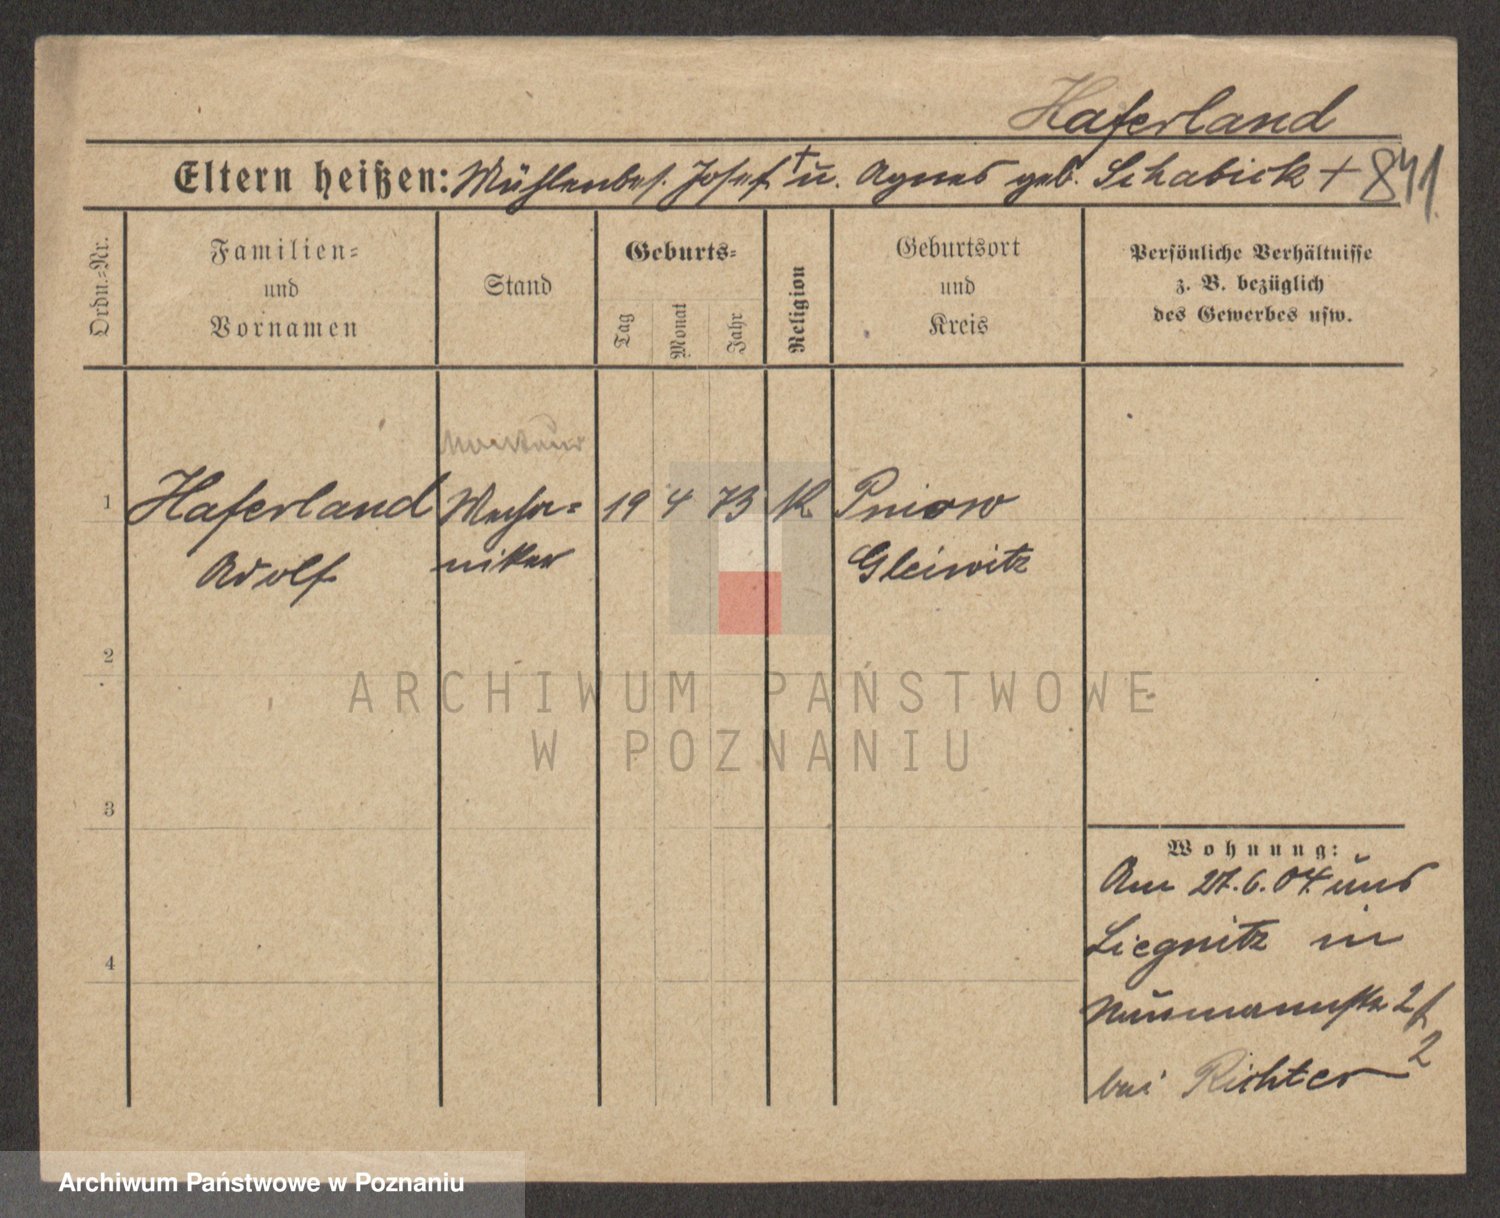 Haferland
Eltern heißen: Mühlenbes. Josef † u. Agnes geb. Schabick + 841.
Ordn.-Nr.
Familien-
und
Vornamen
Stand
Geburts-
Tag
Monat
Jahr
Religion
Geburtsort
und
Kreis
Persönliche Verhältnisse
z. B. bezüglich
des Gewerbes usw.
1 Haferland Mecha- 19 4 73 K Pniow
Adolf niker Gleiwitz
2
ARCHIWUM PAŃSTWOWE
W POZNANIU
3
4
Wohnung:
Am 27.6.04 aus
Liegnitz in
2
bei Richter 2
Archiwum Państwowe w Poznaniu